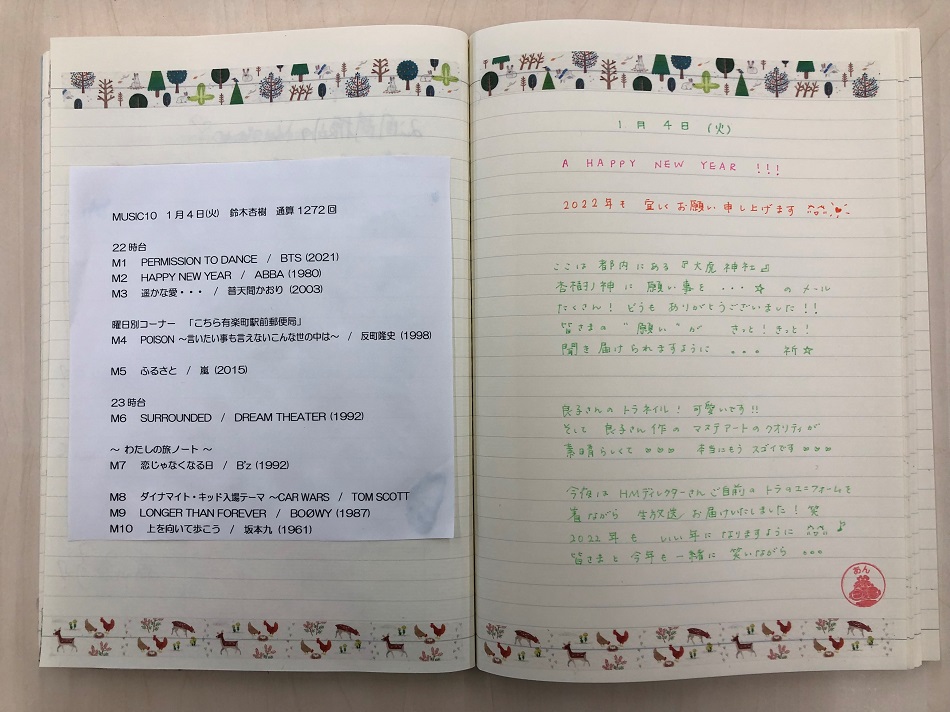 MUSIC10 1月4日(火) 鈴木杏樹 通算1272回
22時台
M1 PERMISSION TO DANCE / BTS (2021)
M2 HAPPY NEW YEAR / ABBA (1980)
M3 遥かな愛・・・ / 普天間かおり (2003)
曜日別コーナー 「こちら有楽町駅前郵便局」
M4 POISON ~言いたい事も言えないこんな世の中は~ / 反町隆史 (1998)
M5 ふるさと / 嵐 (2015)
23時台
M6 SURROUNDED / DREAM THEATER (1992)
~ わたしの旅ノート ~
M7 恋じゃなくなる日 / B'z (1992)
M8 ダイナマイト・キッド入場テーマ ~CAR WARS / TOM SCOTT
M9 LONGER THAN FOREVER / BOØWY (1987)
M10 上を向いて歩こう / 坂本九 (1961)
1月4日 (火)
A HAPPY NEW YEAR !!!
2022年も 宜しくお願い申し上げます
ここは 都内にある 『大虎神社』
杏樹ノ神に 願い事を ・・・ ☆ のメール
たくさん! どうも ありがとうございました!!
皆さまの "願い" が きっと! きっと!
聞き届けられますように 。。。 祈☆
良子さんの トラネイル! 可愛いです!!
そして 良子さん作の マステアートのクオリティが
素晴らしくて 本当にもう スゴイです
今夜は HMディレクターさんご自前の トラのユニフォームを
着ながら 生放送 お届けいたしました! 笑
2022年も いい年に なりますように
皆さまと 今年も 一緒に 笑いながら 。。。
あん